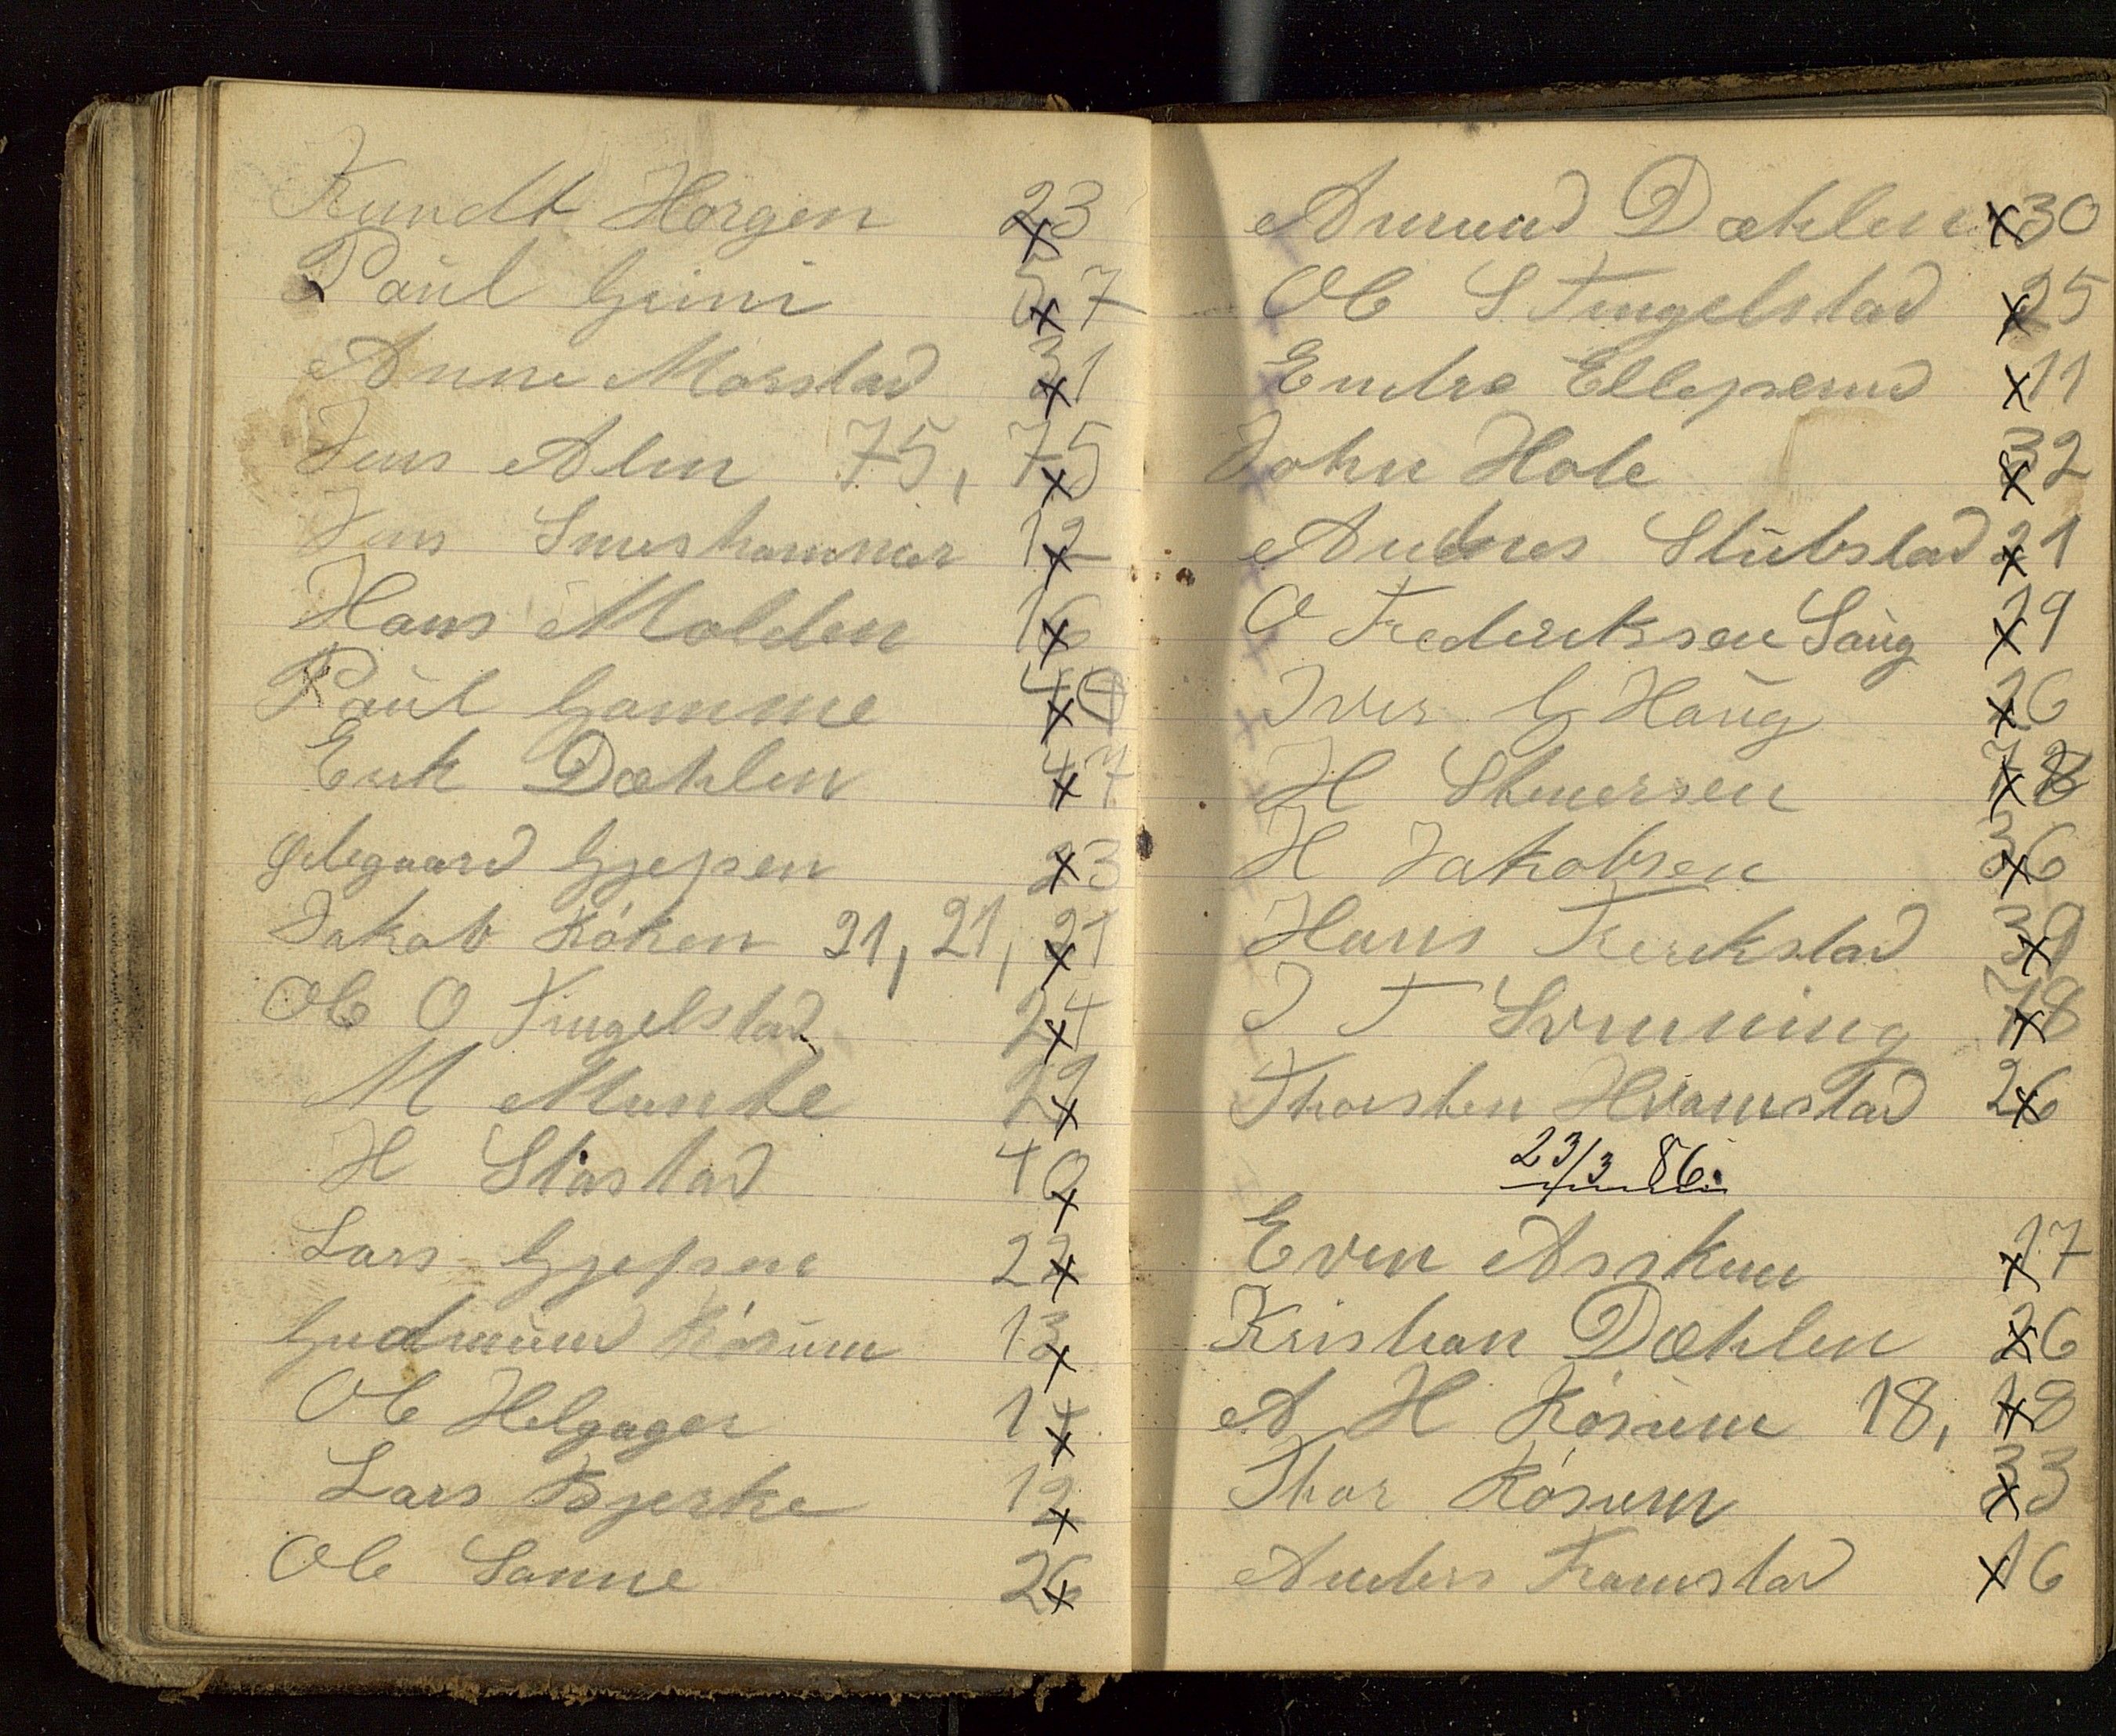 Kundt Horgen 23
Paul Grini 57
Anne Morstad 31
Jens Alm 75, 75
Jens Smeshammer 12
Hans Molden 16
Paul Gamme 40
Erik Dæhlen 47
Gjepsen 23
Jakob Røken 21, 21, 21
Ole O Tingelstad 24
M Munke 29
H Stastad 40
Lars Gjepsen 22
Gudmund Røsum 13
Ole Helgager
Lars Bjerke 12
Ole Sanne 26
Amund Dæhlen 30
Ole S Tingelstad 25
Endre Ellefserud 11
John Hole 32
Anders Stubstad 21
O Frederiksen Saug 19
Iver G Haug 26
H Stenersen
H Jakobsen 36
Hans Frerikstad 39
J T Svenning 78
Thorsten Hvamstad 26
23/3 86.
Even Askum 17
Kristian Dæhlen 26
A H Røsum 18, 18
Thor Røsum 33
Anders Framstad 16